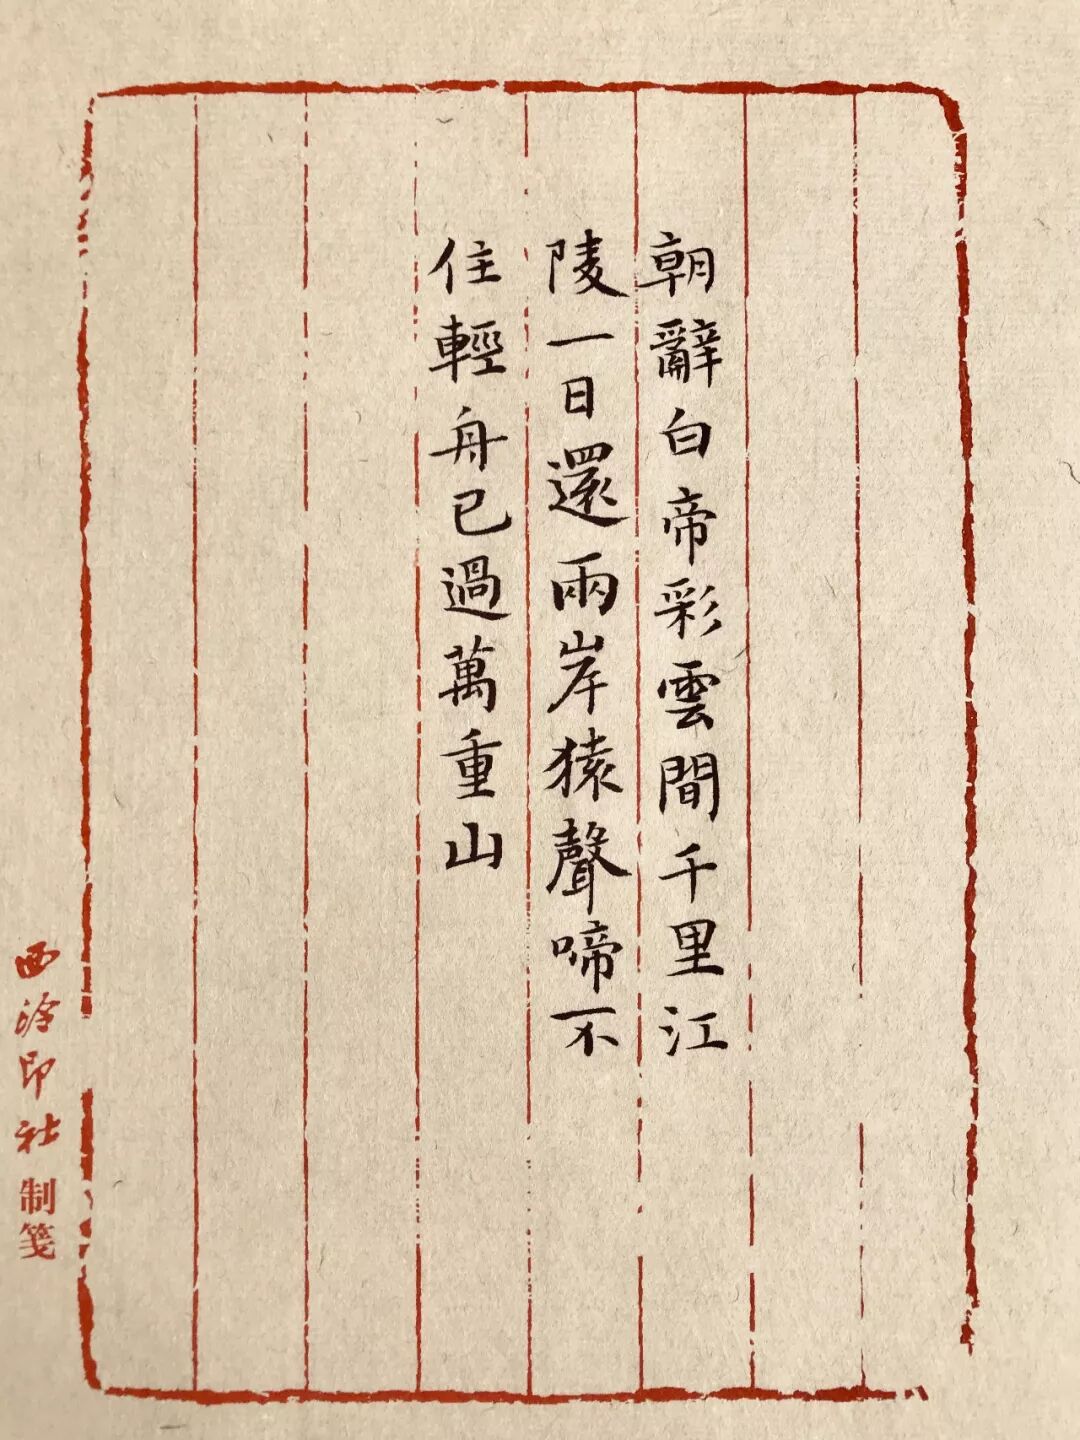 朝辭白帝彩雲間千里江
陵一日還兩岸猿聲啼不
住輕舟已過萬重山
西泠印社制箋